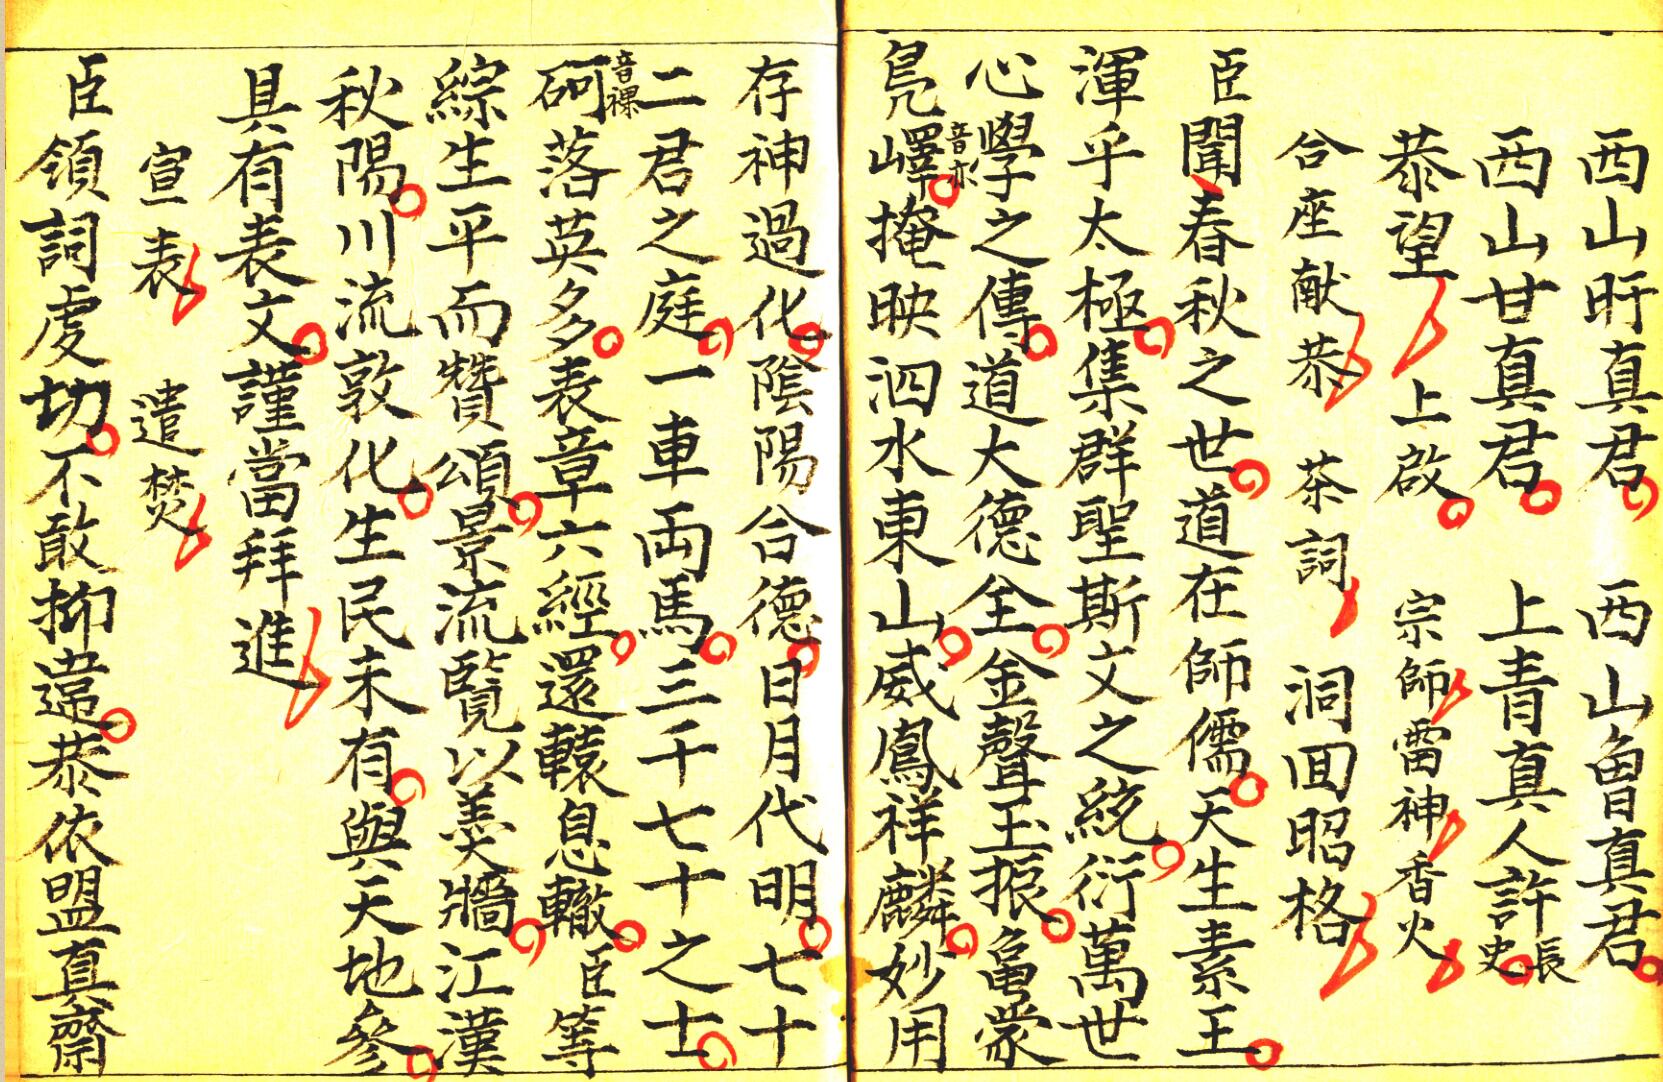 西山旴真君　西山魯真君
西山甘真君　上青真人許長史
恭望　上啟　宗師雷神香火
合座献恭　茶詞　洞囬昭格
臣聞春秋之世道在師儒天生素王
渾乎太極集群聖斯文之統衍萬世
心學之傳道大德全金聲玉振龜蒙
鳧嶧音亦掩映泗水東山威鳳祥麟妙用
存神過化陰陽合德日月代明七十
二君之庭一車両馬三千七十之士
砢音祼落英多表章六經還轅息轍臣等
綜生平而贊頌景流覽以羙牆江漢
秋陽川流敦化生民未有與天地參
具有表文謹當拜進
宣表　遣焚
臣領詞虔切不敢抑違恭依盟真齋